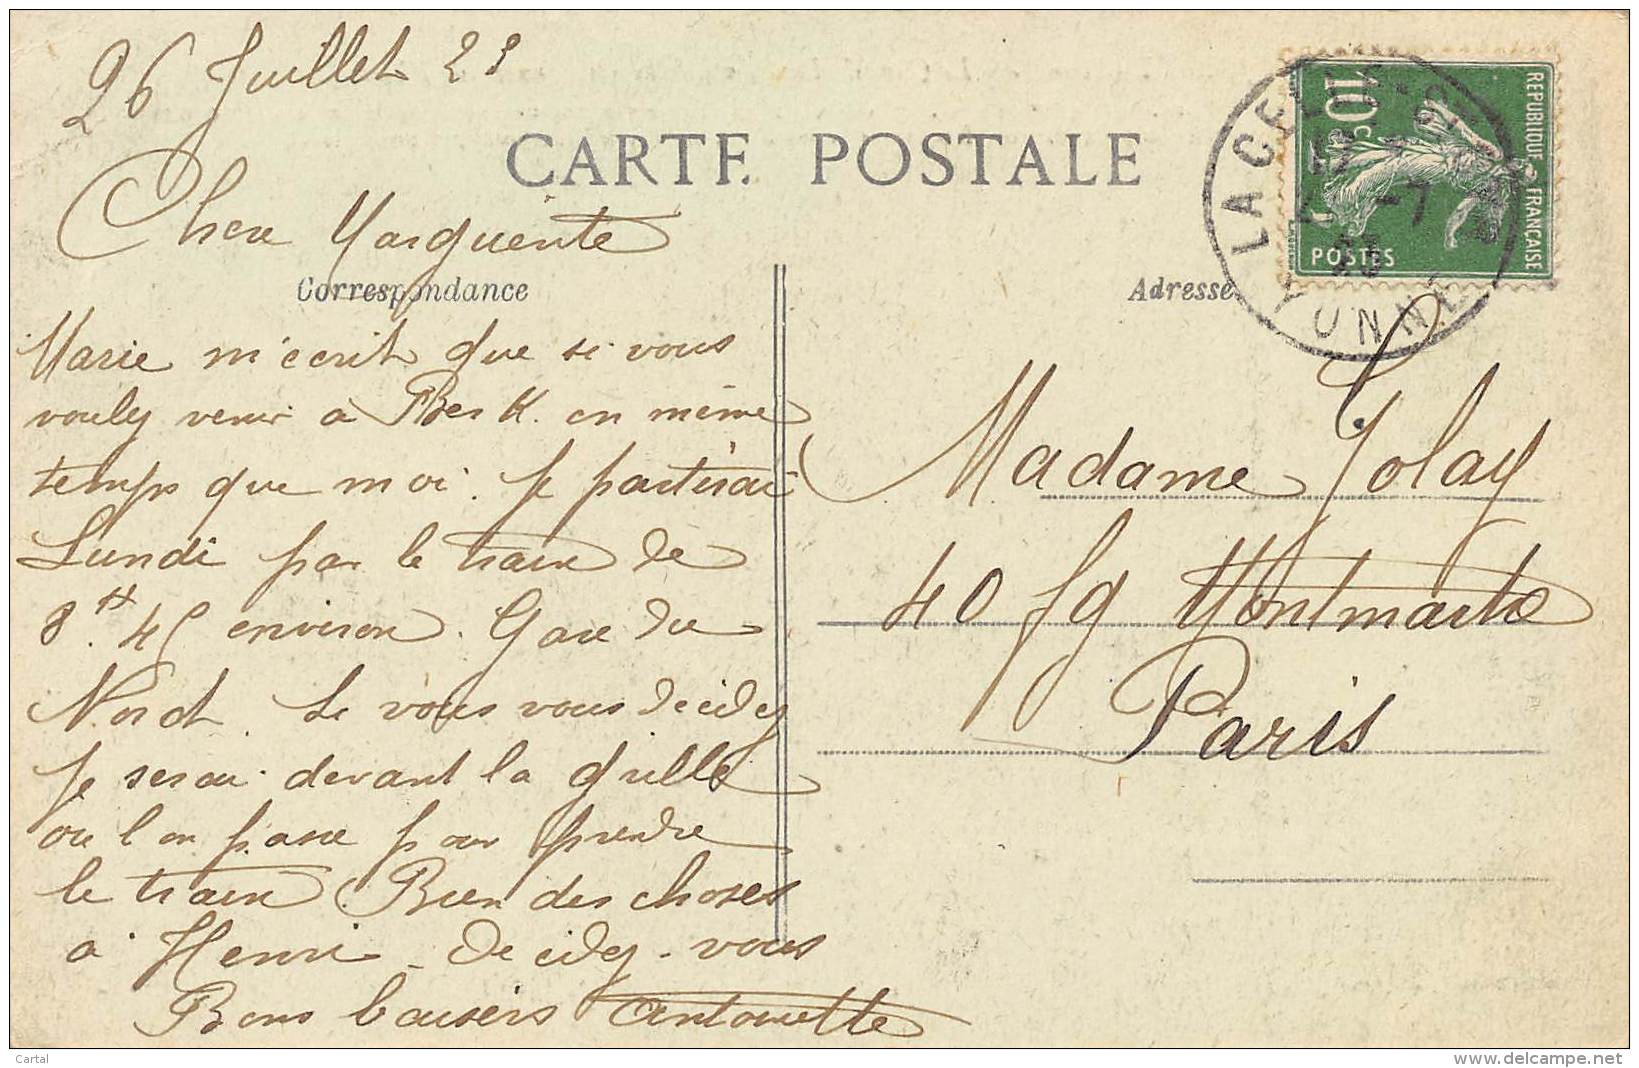 26 Juillet 23
CARTE POSTALE
Chere Marguerite
Correspondance
Marie m'ecrit que si vous
voulez venir a Berk en même
temps que moi. Je partirai
Lundi par le train de
8.H 45 environ. Gare du
Nord. Si vous vous decidez
Je serai devant la grille
ou l'on passe pour prendre
le train Bien des choses
a Henri - Decidez-vous
Bons baisers Antoinette
Adresse
REPUBLIQUE FRANÇAISE
10c
POSTES
LA CELLE-
-7
23
YONNE
Madame Jolay
40 fg Montmartre
Paris
Cartal
www.delcampe.net